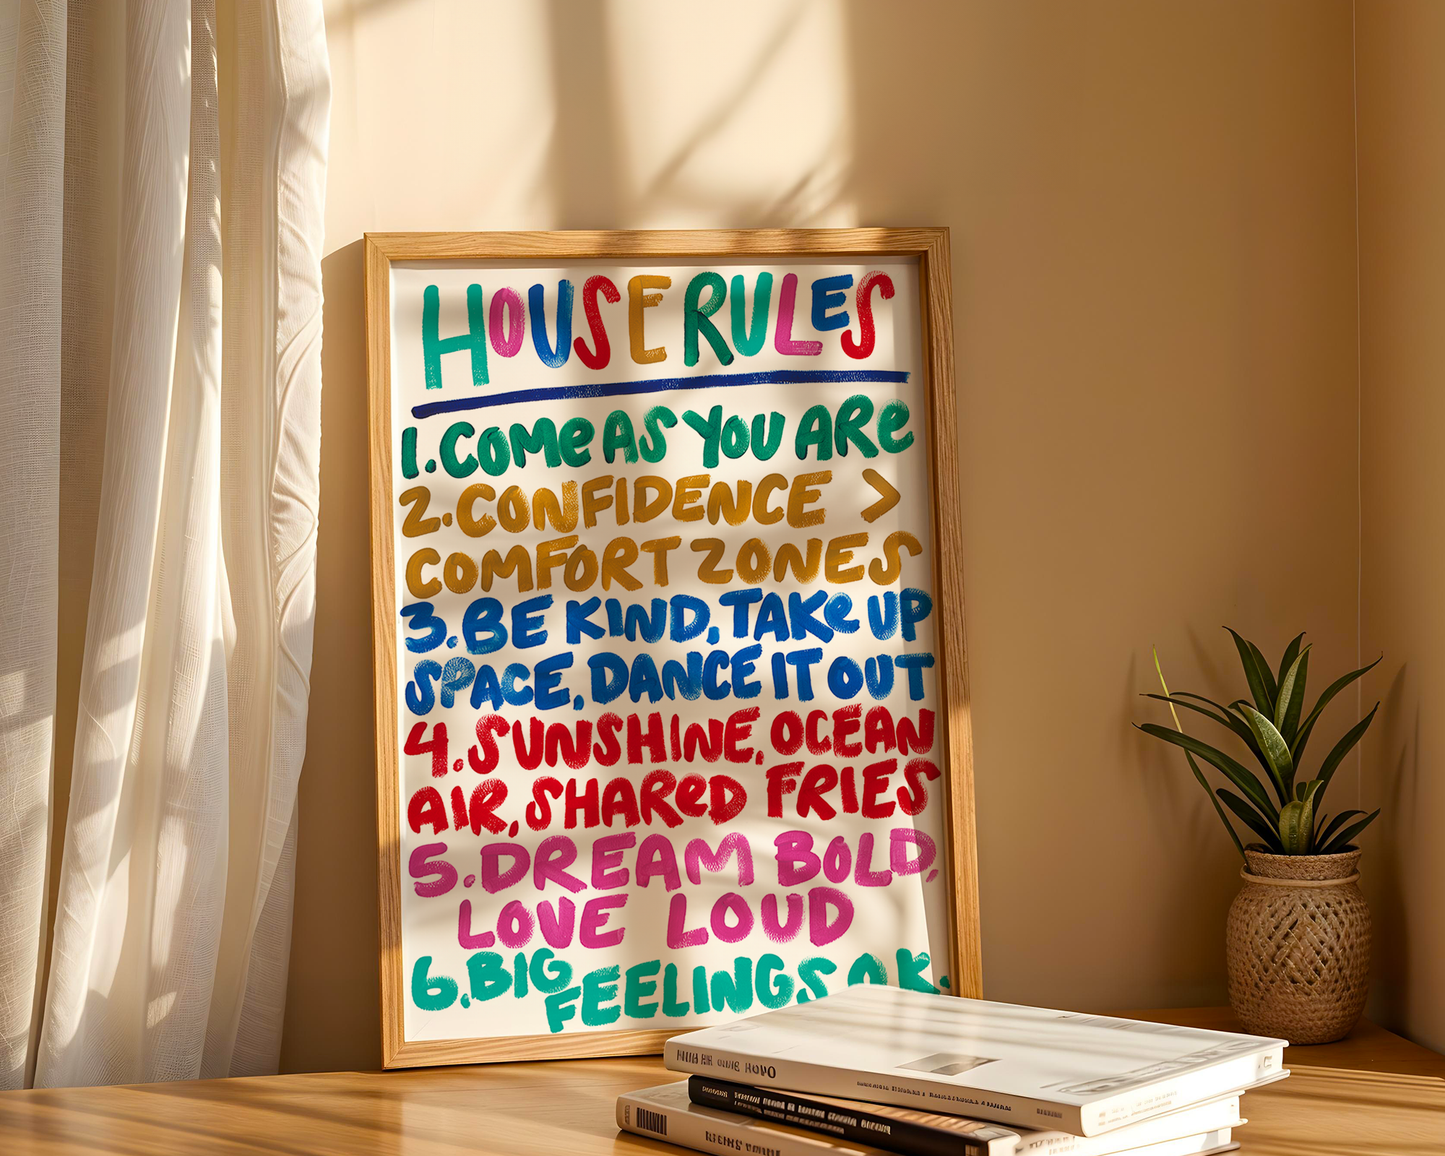 HOUSE RULES
1. COMe AS YOU ARe
2. CONFIDENCE >
COMFORT ZONES
3. BE KIND, TAKe UP
SPACE, DANCE IT OUT
4. SUNSHINE, OCEAN
AIR, SHAReD FRIES
5. DREAM BOLD,
LOVE LOUD
6. BIG
FEELINGS O.K.